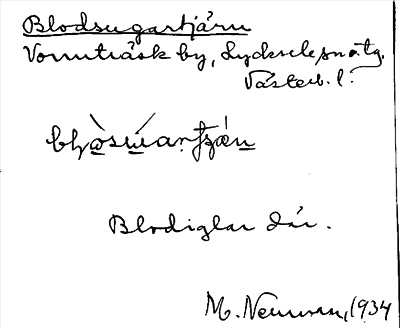 Blodsugartjärn
Vormträsk by, Lycksele snötg.
Västerb. l.
Blodiglar där.
M. Neuman, 1934